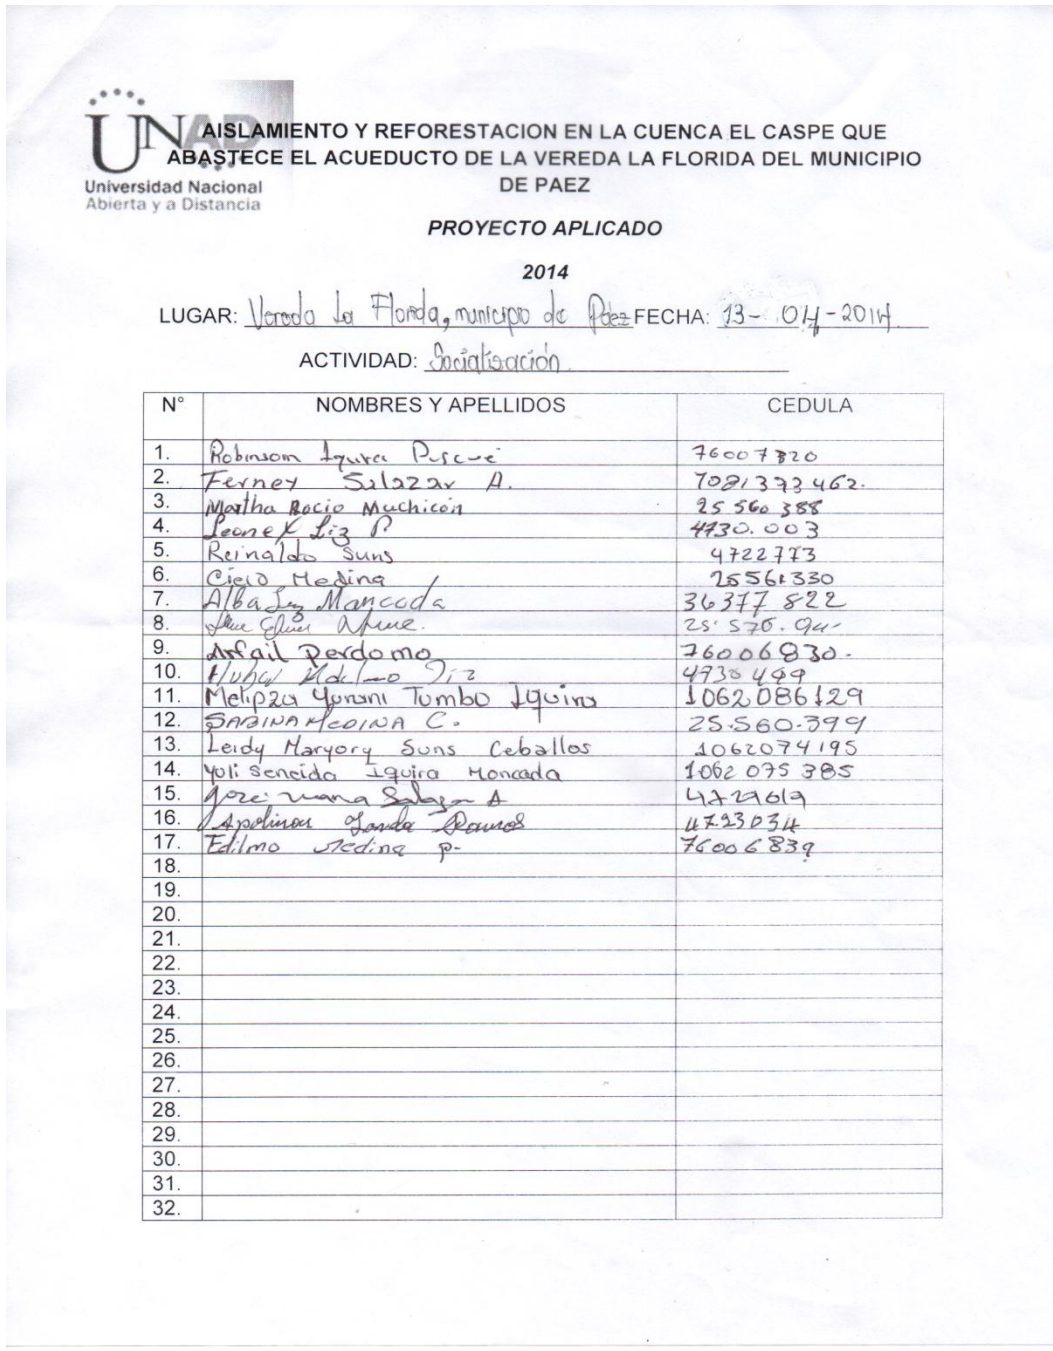 UNAD
Universidad Nacional
Abierta y a Distancia
AISLAMIENTO Y REFORESTACION EN LA CUENCA EL CASPE QUE
ABASTECE EL ACUEDUCTO DE LA VEREDA LA FLORIDA DEL MUNICIPIO
DE PAEZ
PROYECTO APLICADO
2014
LUGAR: Vereda La Florida, municipio de Páez FECHA: 13-04-2014
ACTIVIDAD: Socialización
N° NOMBRES Y APELLIDOS CEDULA
1. Robinsom Iquira Piscue 76007320
2. Ferney Salazar A. 1081393462.
3. Martha Rocio Muchicón 25 560 388
4. Leonel Liz P 4730.003
5. Reinaldo Suns 4722773
6. Cielo Medina 25561330
7. Alba Luz Mancada 36377 822
8. 25.570.
9. Arfail Perdomo 76006830.
10. 4730499
11. Yurani Tumbo Iquira 1062086129
12. SABINA MEDINA C. 25.560.399
13. Leidy Maryory Suns Ceballos 1062074195
14. Yuli Seneida Iquira Moncada 1062 075 385
15. Salazar A 4729619
16. Apolinar Ramos 4723034
17. Edilmo Medina p- 76006839
18.
19.
20.
21.
22.
23.
24.
25.
26.
27.
28.
29.
30.
31.
32.